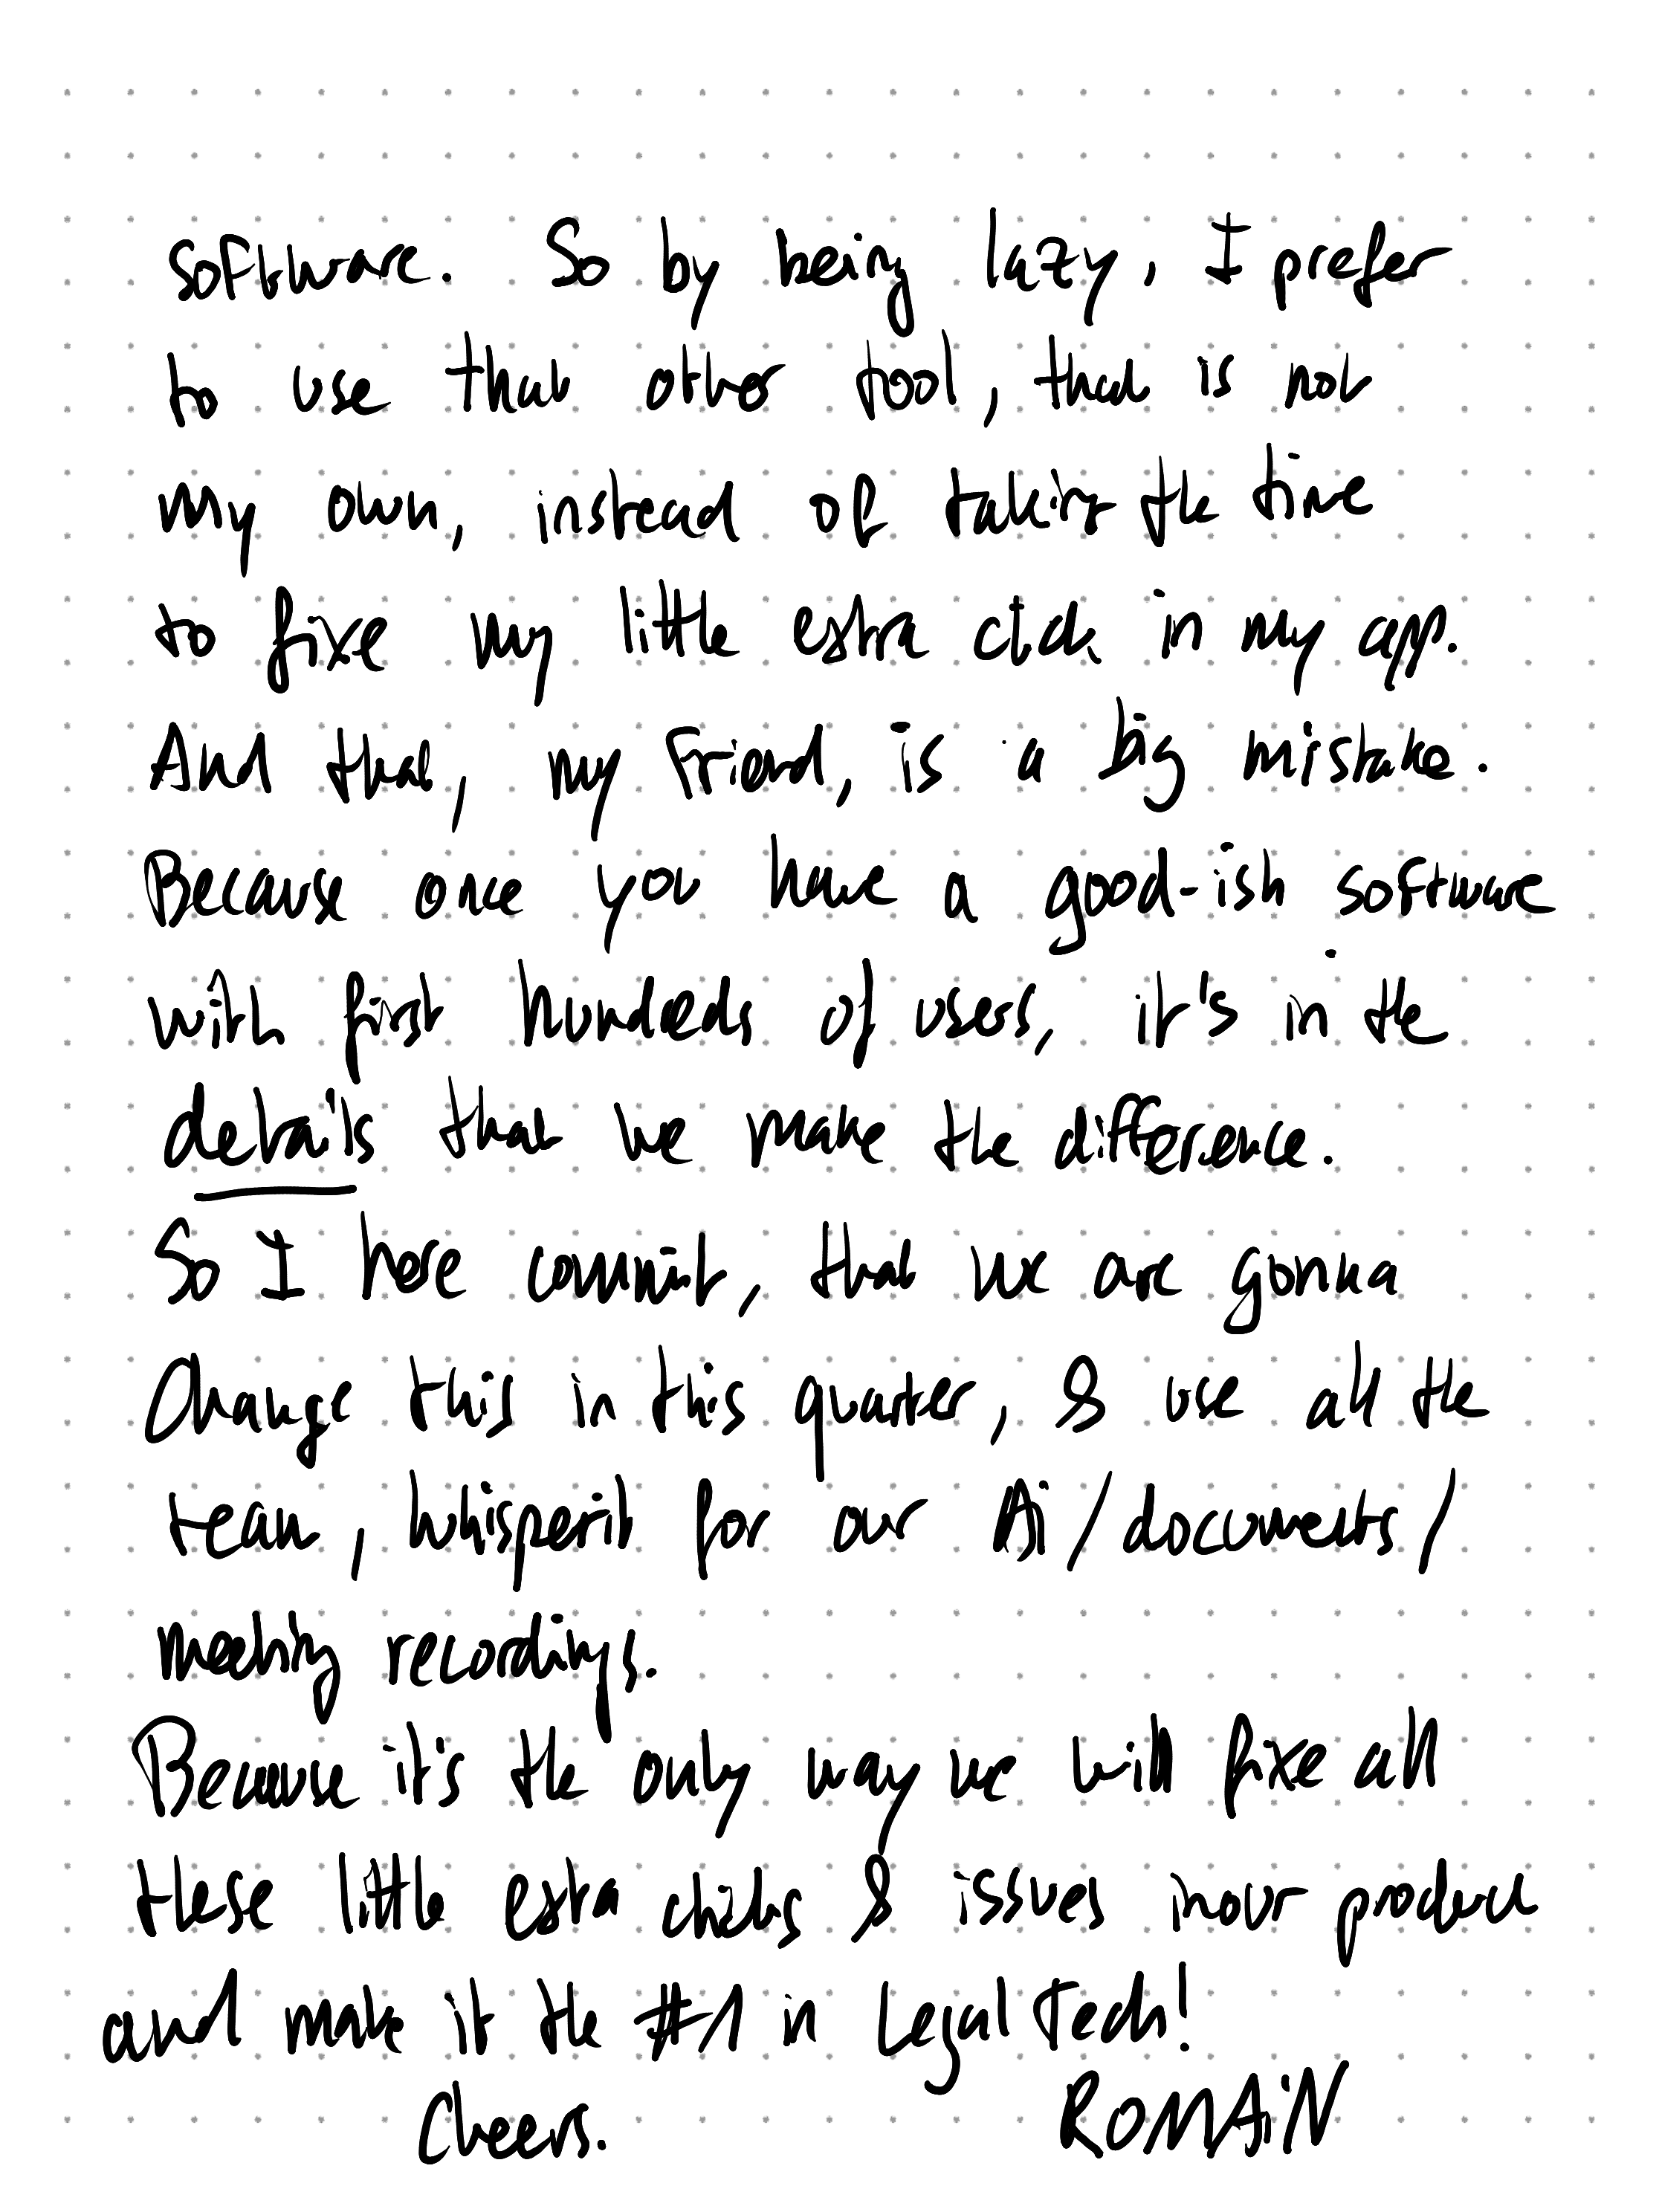 software. So by being lazy, I prefer
to use that other tool, that is not
my own, instead of taking the time
to fixe my little extra click in my app.
And that, my friend, is a big mistake.
Because once you have a good-ish software
with first hundreds of users, it's in the
details that we make the difference.
So I here commit, that we are gonna
Change this in this quarter, & use all the
team, whisperit for our Ai/documents/
meeting recordings.
Because it's the only way we will fixe all
these little extra clicks & issues in our product
and make it the #1 in Legal Tech!
Cheers. ROMAiN